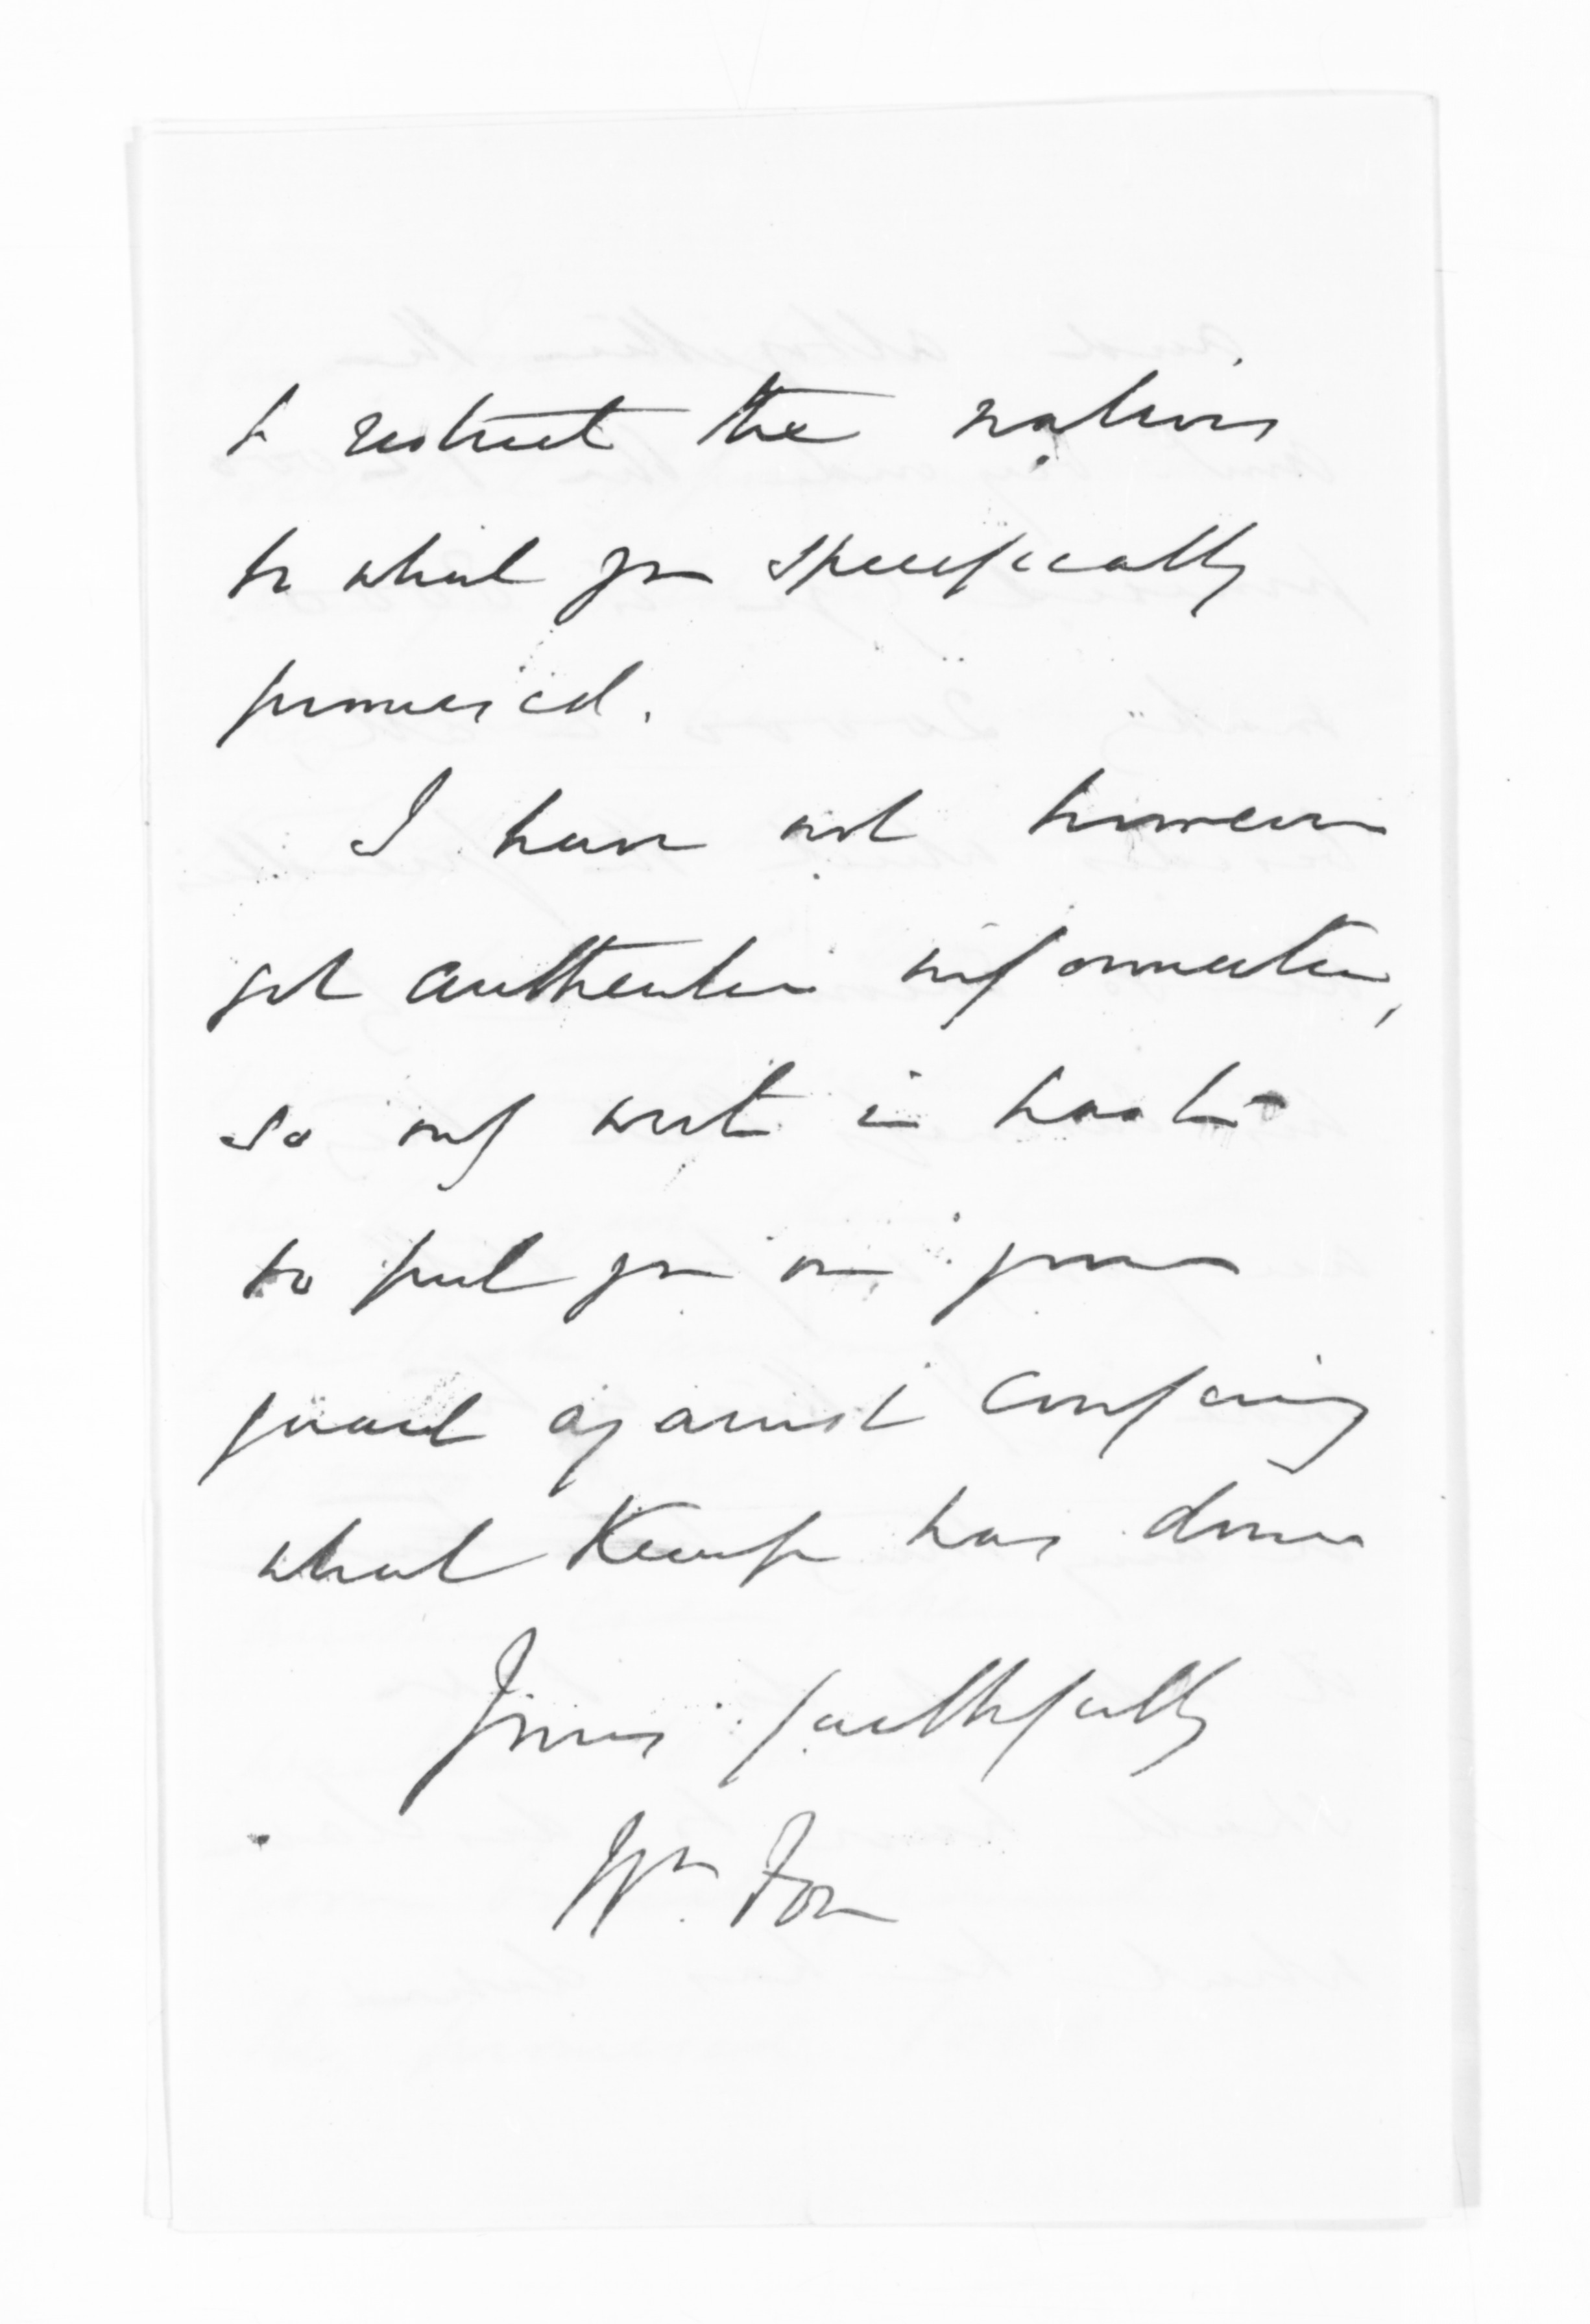 to restrict the natives
to what you specifically
promised.
I have not however
got authentic information,
so only write in haste
to put you on your
guard against confirming
what Kemp has done
Yours faithfully
Wm Fox